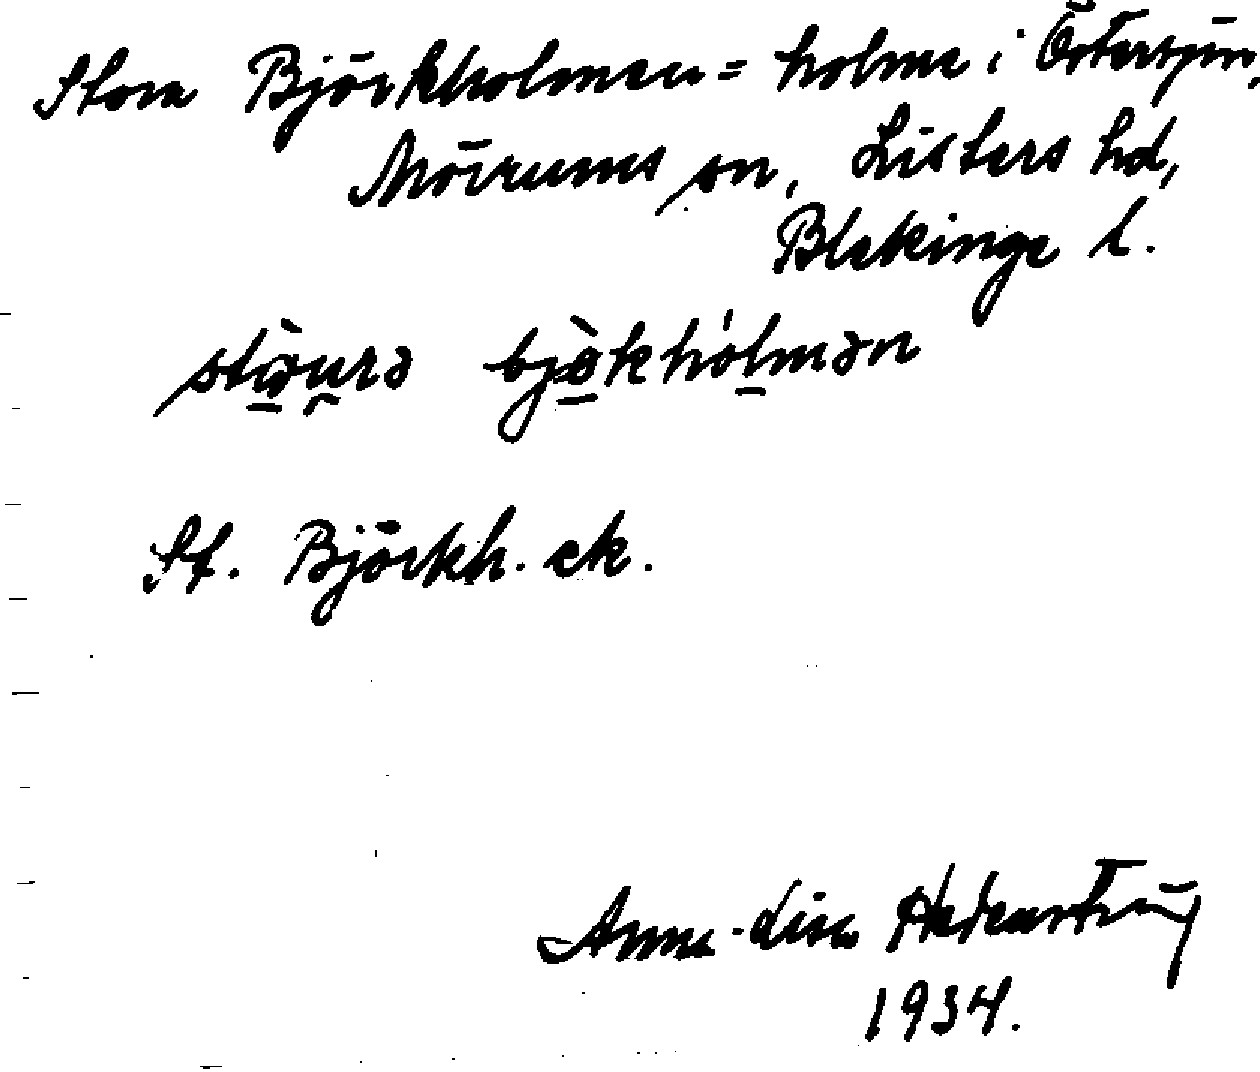 Stora Björkholmen = holme i Östersjön,
Mörrums sn, Listers hd,
Blekinge l.
stæ̀u̯rə bjö̀khólmən
St. Björkh. ek.
Anna-Lisa
1934.